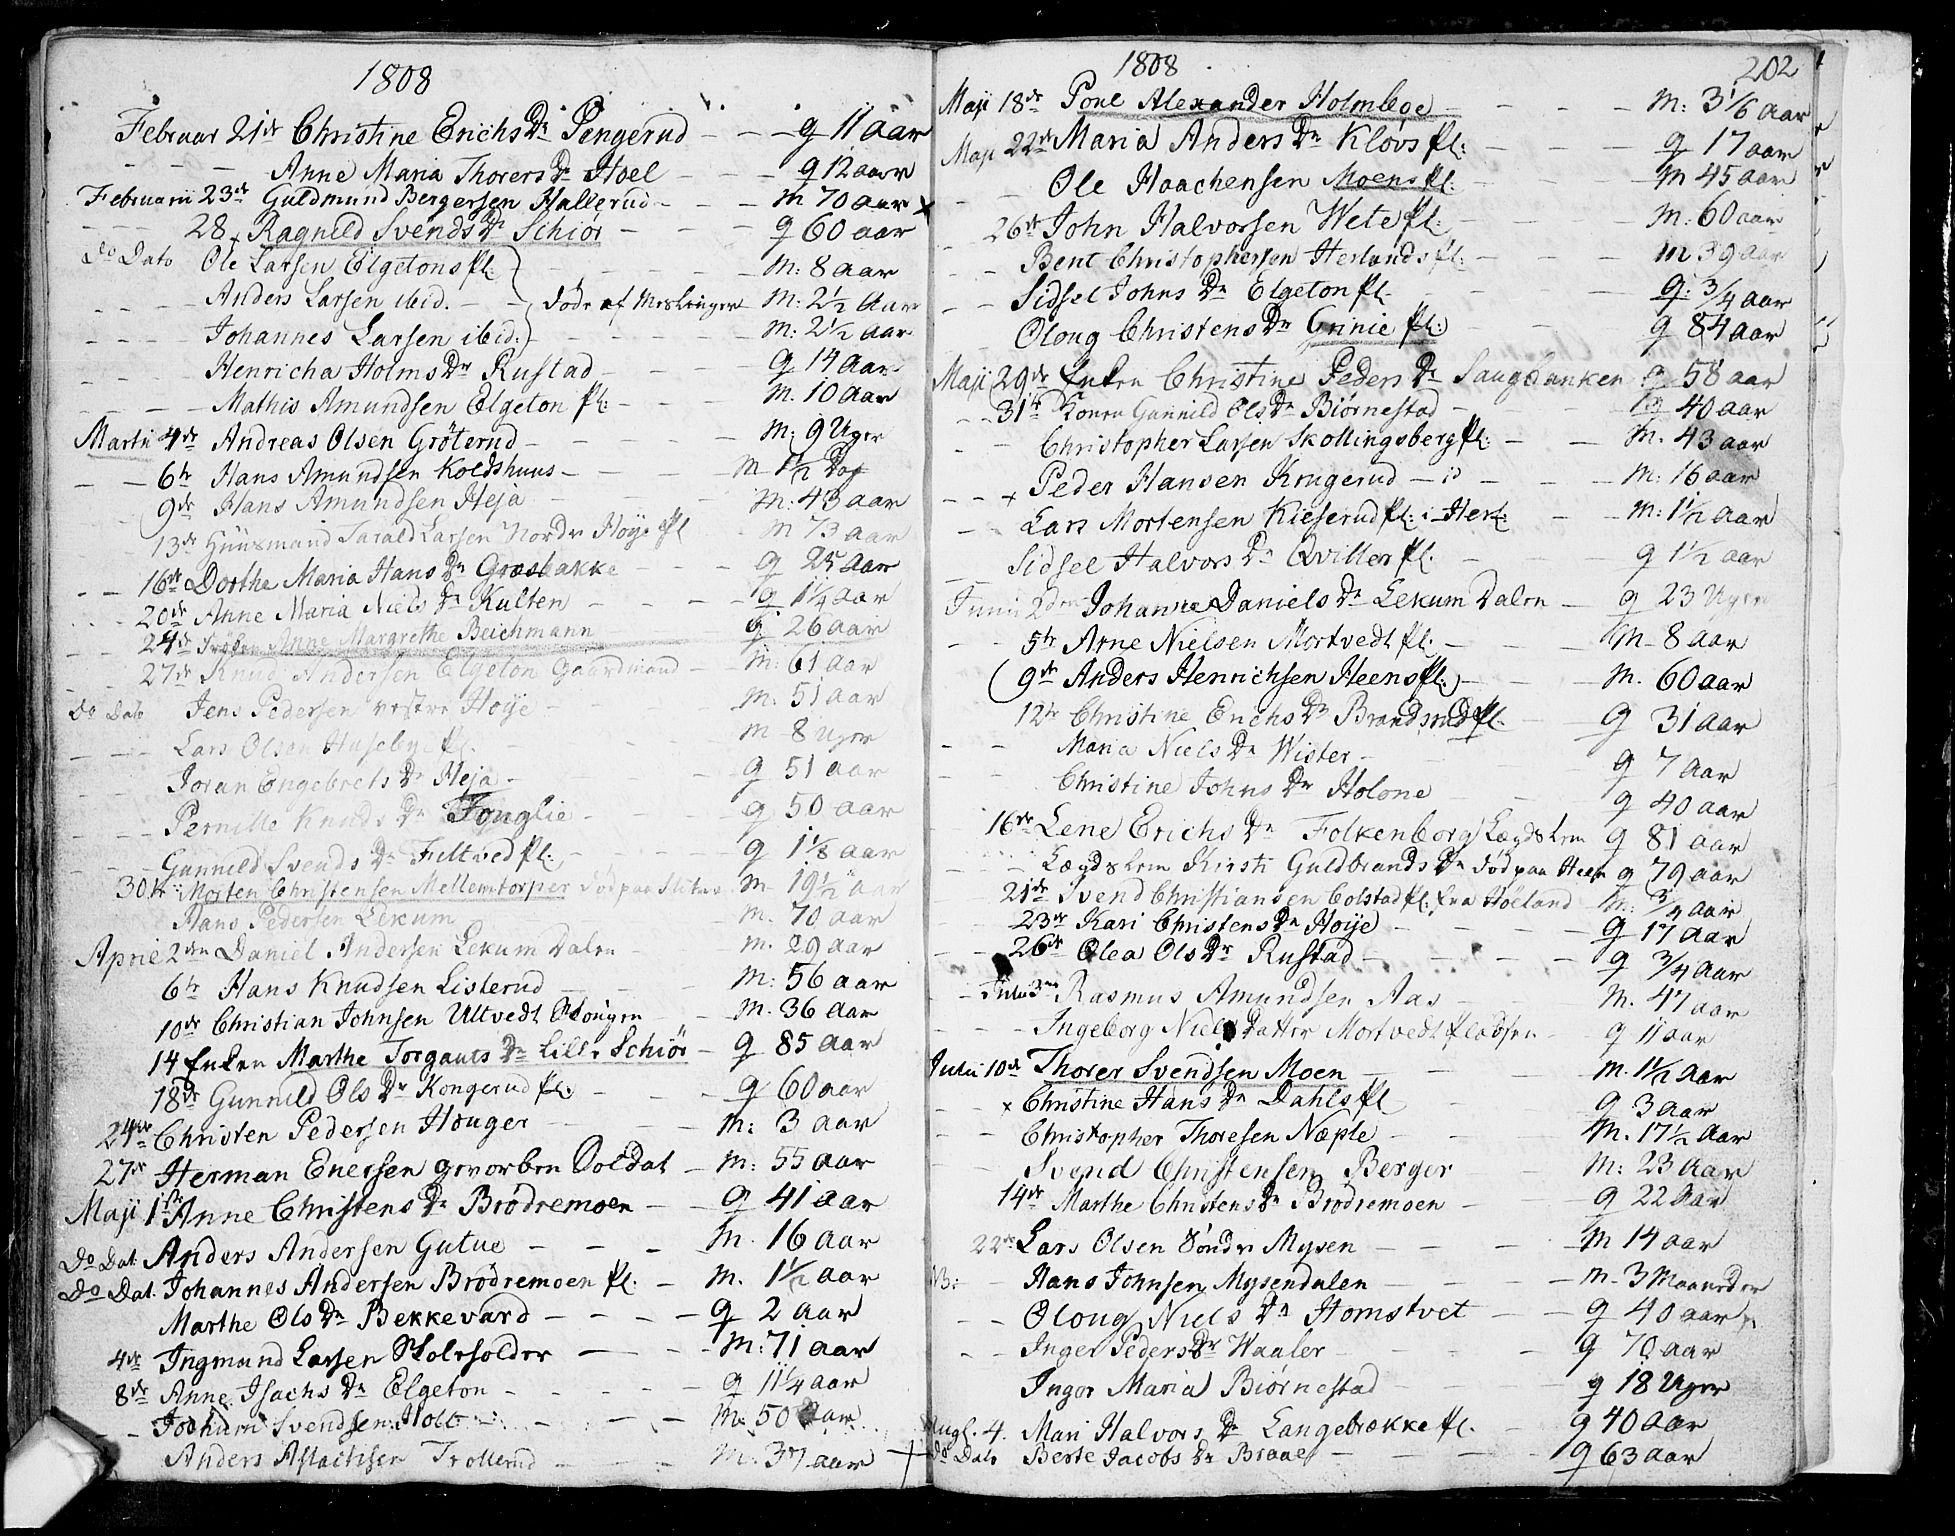 1808
Februar 21de Christine Erichs Dr Pengerud - - - q 11 aar
- - - Anne Maria Thorers Dr Hoel - - - q 12 aar
Februarii 23de Guldmund Bergersen Hallerud - - - m 70 aar
28 Ragnild Svends Dr Schiör - - - q 60 aar
Do Dato Ole Larsen Elgetons pl: - - - m: 8 aar
Anders Larsen ibid. - döde af Meslinger m: 2½ aar
Johannes Larsen ibid: - - m: 2½ aar
Henricha Holms Dr Rustad - - q 14 aar
Mathis Amundsen Elgeton pl: - - m. 10 aar
Martii 4de Andreas Olsen Gröterud - - m: 9 Uger
6te Hans Amundsen Koldshuus - - m 1½ Dag
9de Hans Amundsen Heja - - m: 43 aar
13de Huusmand Tarald Larsen Nordre Hoÿe pl - m 73 aar
16de Dorthe Maria Hans Dr Græsbakke - - q 25 aar
20de Anne Maria Niels Dr Kulten - - - q 1¼ aar
24de Anne Margrethe Beichmann q 26 aar
27de Knud Andersen Elgeton Gaardmand - m: 61 aar
Do Dato Jens Pedersen vestre Hoÿe - m: 51 aar
Lars Olsen Huseby pl. - m 8 Uger
Joran Engebrets Dr Heja - - q 51 aar
Pernille Knuds Dr Fonglie - - q 50 aar
Gunnild Svends Dr Fultved pl: - - q 1⅛ aar
30te Morten Christensen Mellemtorper död paa m 19½ aar
Hans Pedersen Lekum m. 70 aar
April 2den Daniel Andersen Lekum Dalen - m. 29 aar
6te Hans Knudsen Listerud - - m: 56 aar
10de Christian Johnsen Ultvedt - m. 36 aar
14 Enken Marthe Torgauts Dr Lille Schiör - q 85 aar
18de Gunnild Ols Dr Kongerud pl: - - q 60 aar
24de Christen Pedersen Houger - - m: 3 aar
27de Herman Enersen gevorben Soldat - m: 55 aar
Maji 1ste Anne Christens Dr Brödremoen - - q 41 aar
Do Dat. Anders Andersen Gutue - - - m. 16 aar
Do Dat. Johannes Andersen Brödremoen pl: - m. 1½ aar
Marthe Ols Dr Bekkevard - - - q 2 aar
4de Ingmund Larsen Skoleholder - - m: 71 aar
8de Anne Isachs Dr Elgeton - - - q 11¼ aar
Jochum Svendsen Holt - - - m: 50 aar
Anders Trollerud - - - m: 37 aar
1808 202
Maji 18de Poul Alexander Holmboe - - - m: 3⅙ aar
Maji 22de Maria Anders Dr Klövs pl: - - - q 17 aar
Ole Haachensen Moens pl: - - m 45 aar
26de John Halvorsen Wete pl: - m: 60 aar
Bent Christophersen Herlands pl: - - - m 39 aar
Sidsel Johns Dr Elgeton pl. - - q: ¾ aar
Oloug Christens Dr Gnnie pl: - q 84 aar
Maji 29de Enken Christine Peders Dr Saugbanken q 58 aar
31te Konen Gunnild Ols Dr Biörnestad - q 40 aar
Christopher Larsen Skollingsberg pl: - - m. 43 aar
Peder Hansen Krugerud - - - m: 16 aar
Lars Mortensen Kieserud pl: i Herl: - - m: 1½ aar
Sidsel Halvors Dr Qviller pl. - q 1½ aar
Junii 2den Johanne Daniels Dr Lekum Dalen - q 23 Uger
5te Arne Nielsen Mortvedt pl. - - m - 8 aar
9de Anders Henrichsen Heens pl: - - m. 60 aar
12te Christine Erichs Dr Brandsrud pl. - q 31 aar
Maria Niels Dr Wister - q 7 aar
Christine Johns Dr Holone q 40 aar
16de Lene Erichs Dr Folkenborg Lægdslem q 81 aar
Lægdslem Kirsti Guldbrands Dr död paa Heen q 79 aar
21de Svend Christiansen Colstad pl. fra Höeland m: ¾ aar
23de Kari Christens Dr Hoÿe - - - q 17 aar
26de Olea Ols Dr Rustad - - - q ¾ aar
Julii 3die Rasmus Amundsen Aas - m. 47 aar
Ingeborg Niels Datter Mortvedt pladsen - q 11 aar
Julii 10de Thorer Svendsen Moen - - m. 1½ aar
Christine Hans Dr Dahls pl q 3 aar
Christopher Thoresen Næple - - m. 17½ aar
Svend Christensen Berger - m: 23 aar
14de Marthe Christens Dr Brödremoen - - q 22 aar
22de Lars Olsen Söndre Mysen - - - m 14 aar
NB: Hans Johnsen Mysendalen - - m - 3 Maaneder
Oloug Niels Dr Homstvet - - q 40 aar
Inger Peders Dr Waaler - - - q 70 aar
Inger Maria Biörnestad - q 18 Uger
Augl. 4. Mari Halvors Dr Langebrekke pl. - q 40 aar
Do Dato Berte Jacobs Dr Braae - - - q 63 aar